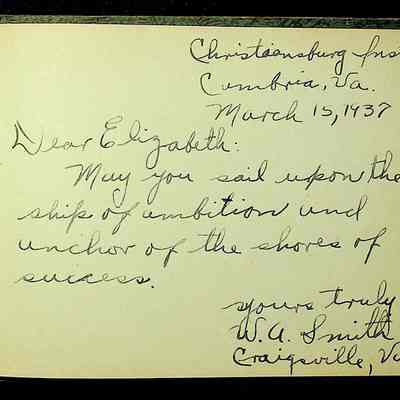 Christiansburg Ins
Cambria, Va.
March 15, 1937
Dear Elizabeth:
May you sail upon the
ship of ambition and
anchor of the shores of
success.
yours truly
W. A. Smith
Craigsville, Va